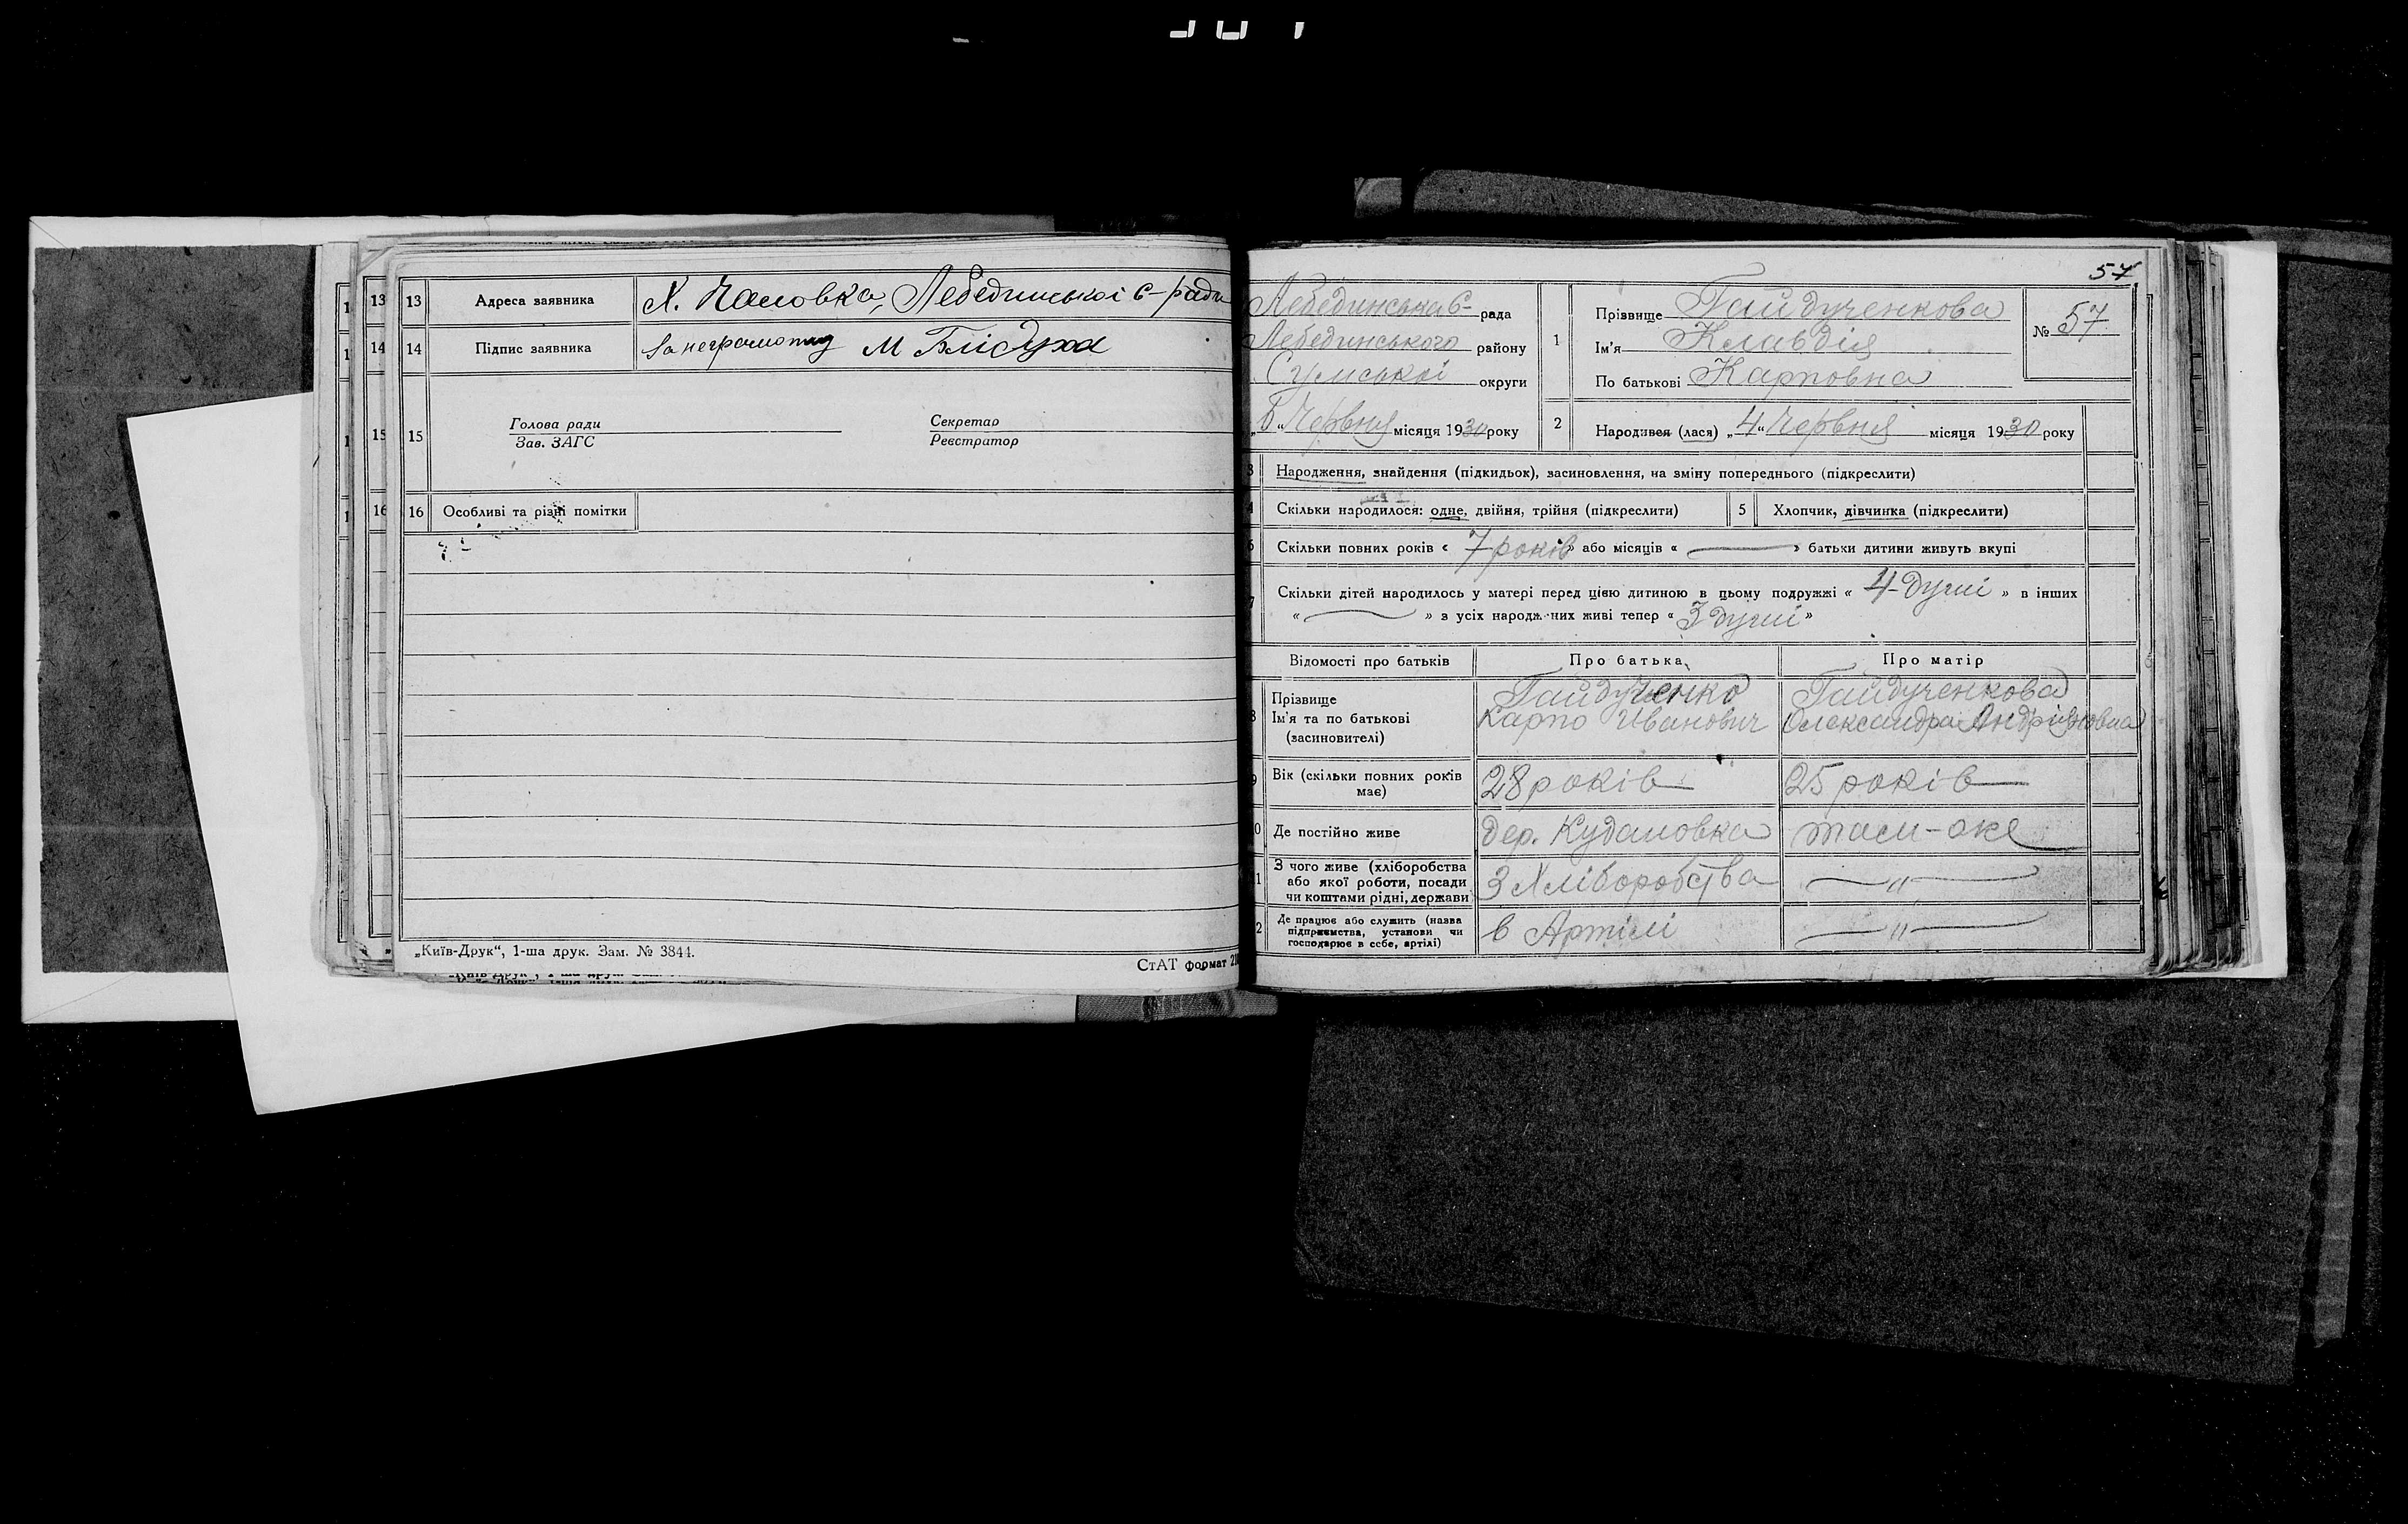 13 Адреса заявника Х. Чаловка, Лебединської с-ради
14 Підпис заявника За неграмотну М Блідуха
15 Голова ради Секретар
Зав. ЗАГС Реєстратор
16 Особливі та різні помітки
„Київ-Друк“, 1-ша друк. Зам. № 3844.
СтАТ формат
57
Лебединська С- рада
Лебединського району
Сумської округи
Червня місяця 1930 року
1 Прізвище Гайдученкова
Ім'я Клавдія
По батькові Карповна
№ 57
2 Народився (лася) „4“ Червня місяця 1930 року
3 Народження, знайдення (підкидьок), засиновлення, на зміну попереднього (підкреслити)
4 Скільки народилося: одне, двійня, трійня (підкреслити) 5 Хлопчик, дівчинка (підкреслити)
6 Скільки повних років « 7 років » або місяців « — » батьки дитини живуть вкупі
7 Скільки дітей народилось у матері перед цією дитиною в цьому подружжі « 4 душі » в інших
« — » з усіх народжених живі тепер « 3 душі »
Відомості про батьків Про батька Про матір
8 Прізвище Гайдученко Гайдученкова
Ім'я та по батькові Карпо Иванович Олександра Андріяновна
(засиновителі)
9 Вік (скільки повних років має) 28 років 25 років
10 Де постійно живе дер. Кудановка там-оке
11 З чого живе (хліборобства або якої роботи, посади чи коштами рідні, держави З Хліборобства — „ —
12 Де працює або служить (назва підприємства, установи чи господарює в себе, артілі) в Артілі — „ —